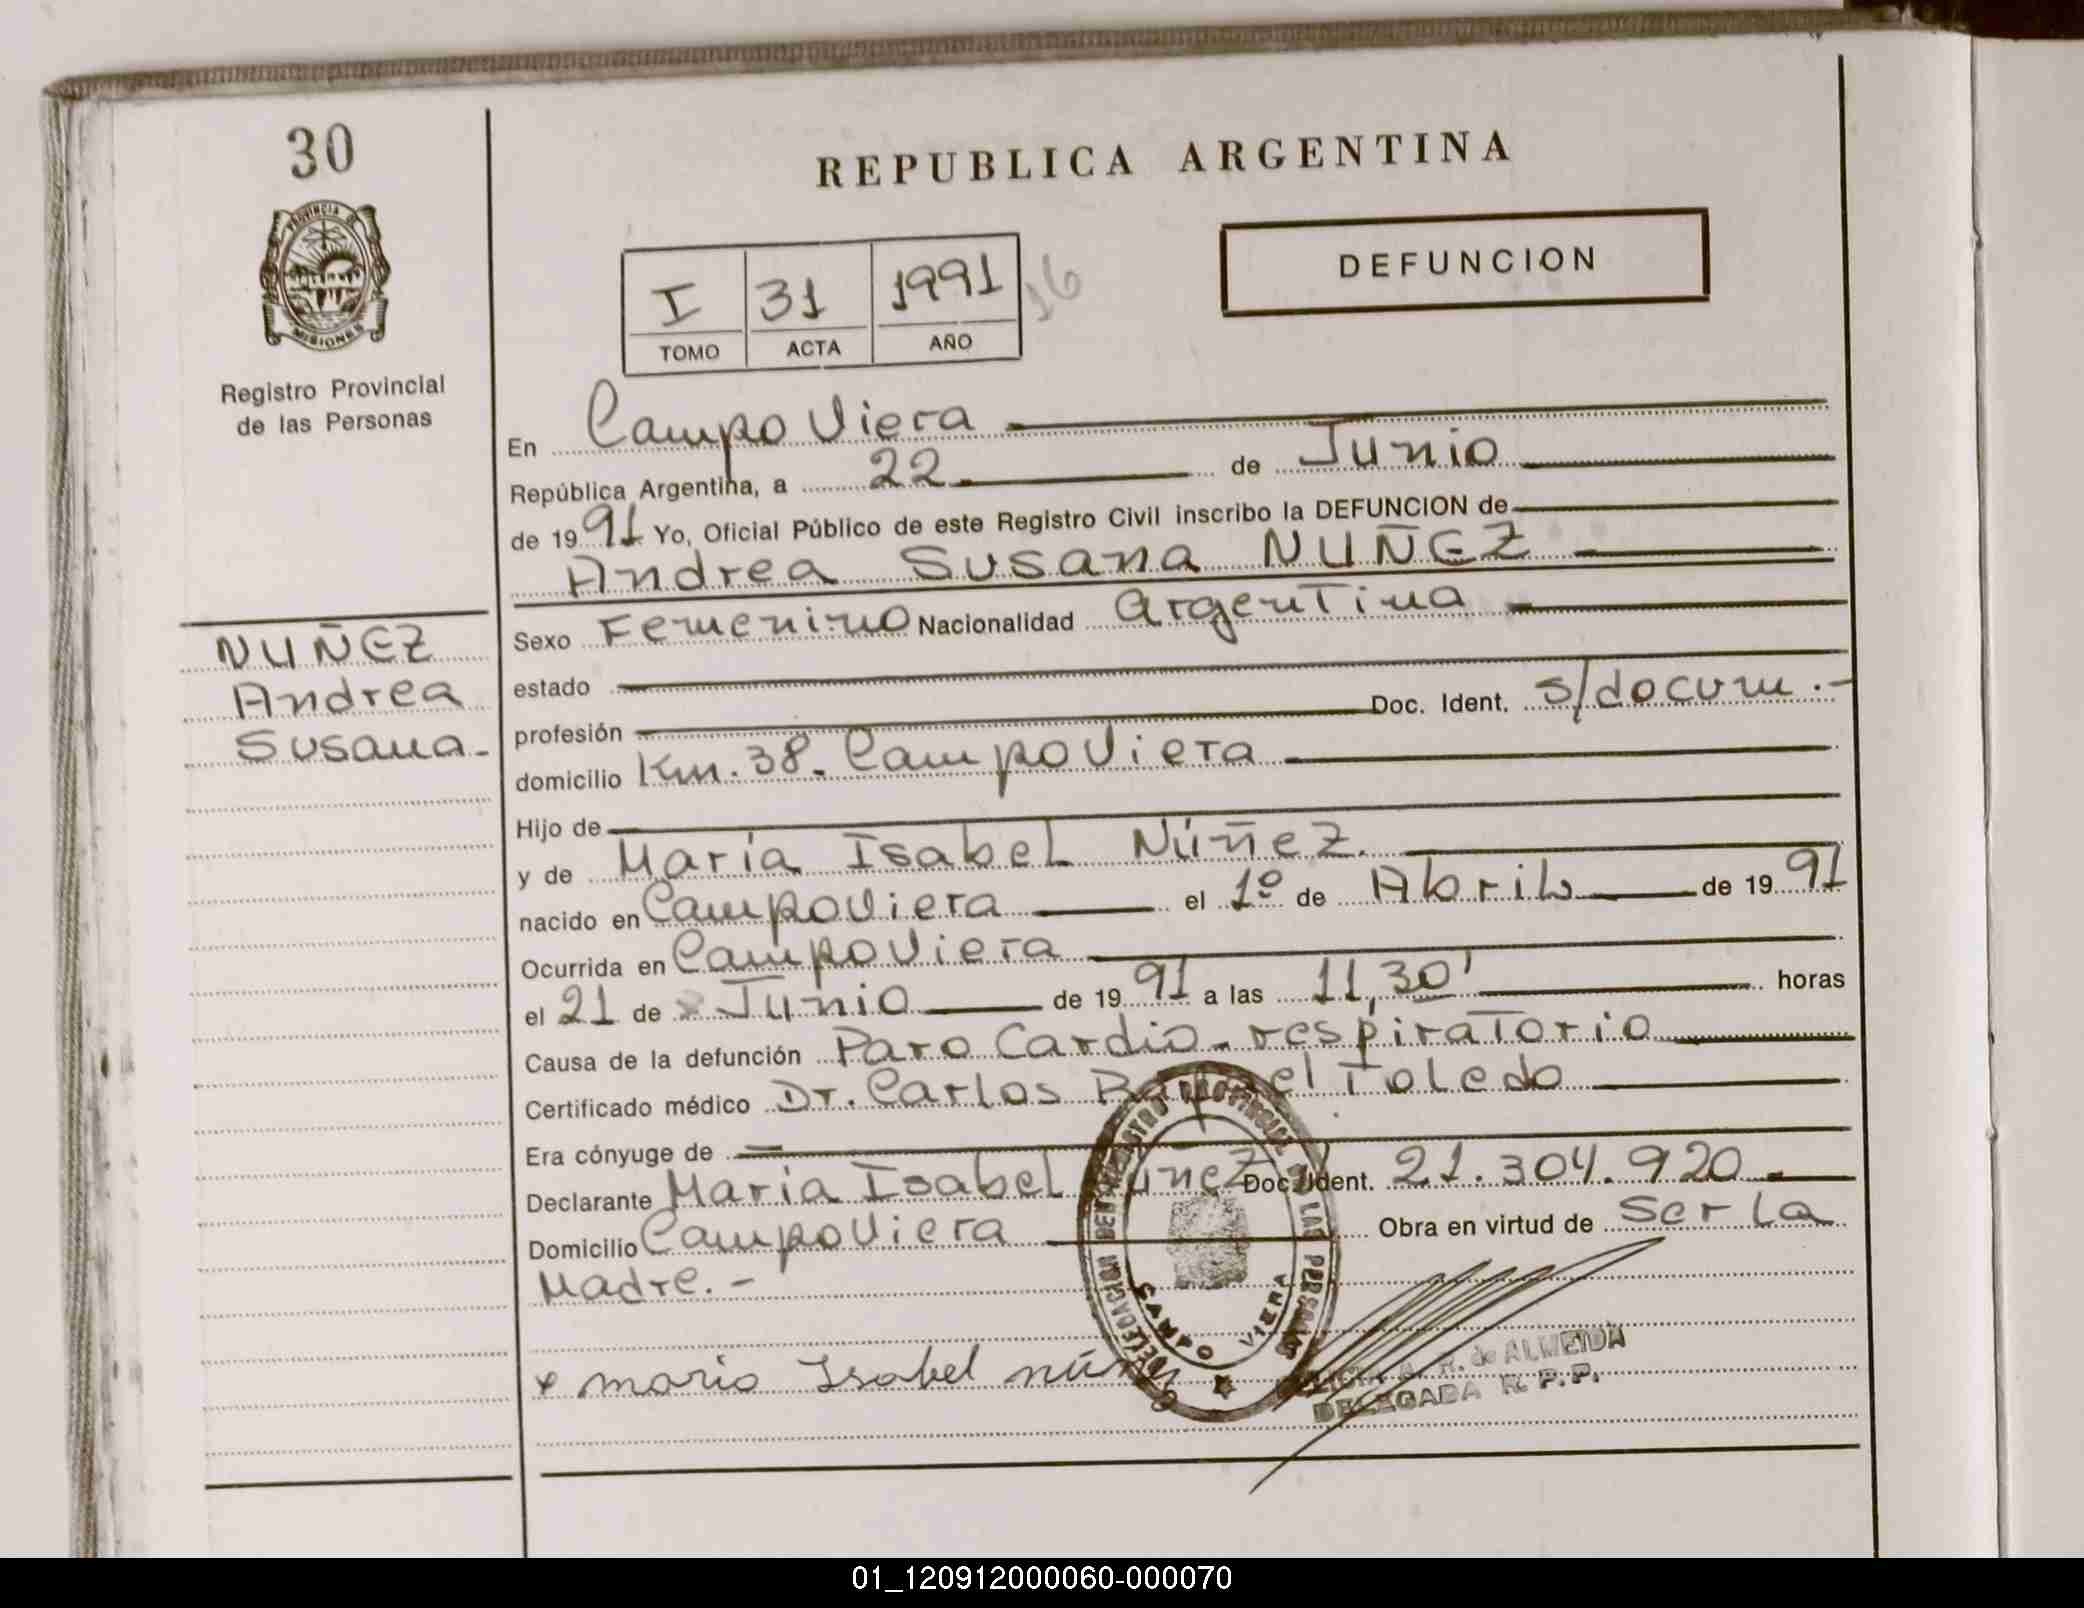 30
REPUBLICA ARGENTINA
PROVINCIA DE
MISIONES
Registro Provincial
de las Personas
I 31 1991 16
TOMO ACTA AÑO
DEFUNCION
En Campo Viera
República Argentina, a 22 de Junio
de 1991 Yo, Oficial Público de este Registro Civil inscribo la DEFUNCION de
Andrea Susana NUÑEZ
NUÑEZ
Andrea
Susana-
Sexo Femenino Nacionalidad Argentina
estado
profesión Doc. Ident. s/docum.-
domicilio Km. 38. Campo Viera
Hijo de
y de María Isabel Núñez.
nacido en Campo Viera el 1º de Abril de 1991
Ocurrida en Campo Viera
el 21 de Junio de 1991 a las 11,30' horas
Causa de la defunción Paro Cardio-respiratorio
Certificado médico Dr. Carlos Toledo
Era cónyuge de
Declarante María Isabel Núñez Doc. Ident. 21.304.920.
Domicilio Campo Viera Obra en virtud de Ser la
Madre.-
DELEGACION DEL REGISTRO PROVINCIAL DE LAS PERSONAS
CAMPO VIERA
maria Isabel núñez
R. de ALMEIDA
DELEGADA R. P. P.
01_120912000060-000070